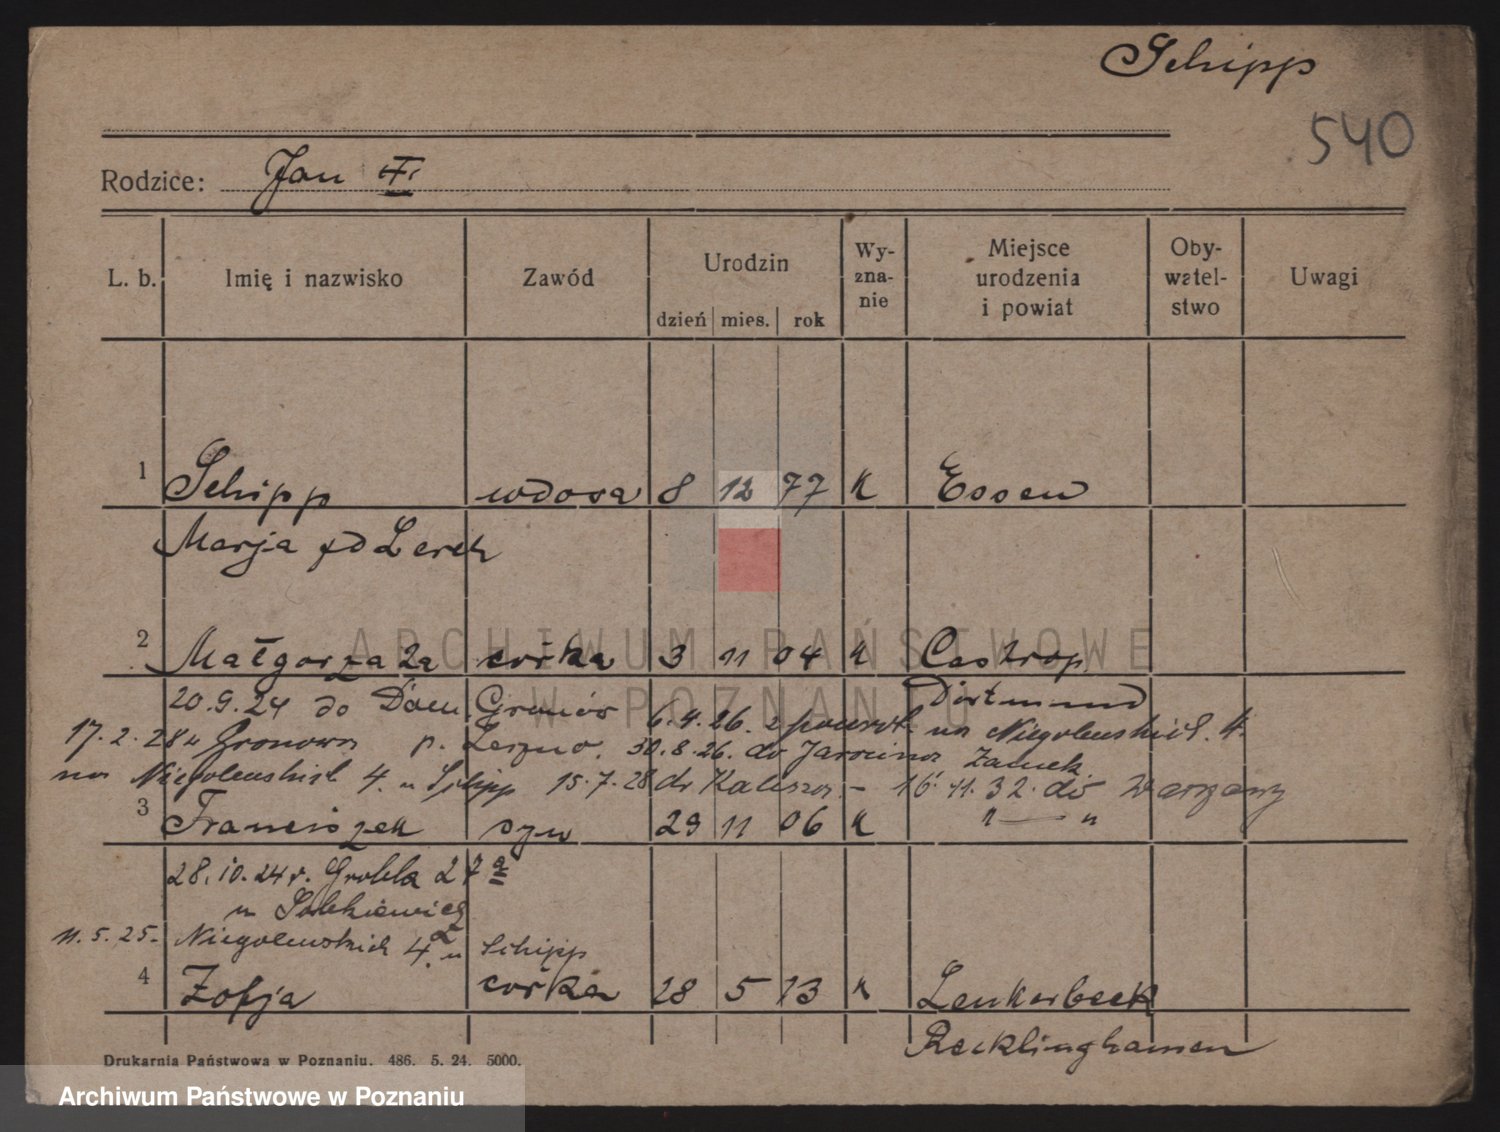 Schipp
540
Rodzice: Jan
L. b. Imię i nazwisko Zawód Urodzin dzień mies. rok Wy-zna-nie Miejsce urodzenia i powiat Oby-watel-stwo Uwagi
1 Schipp wdowa 8 12 77 K Essen
Marja Lerch
2 Małgorzata córka 3 11 04 K Castrop
20.9.24 do Dom. Gronów Dortmund
6.4.26. z powrot. na Niegolewskich 4.
17.2.28 u Gronowa p. Leszno. 30.8.26. do Jarocina Zamek
na Niegolewskich 4. u Schipp 15.7.28 do Kalisza. – 16.11.32. do
3 Franciszek syn 29 11 06 K " — "
28.10.24 r. Grobla 27a
u
11.5.25. Niegolewskich 4. u Schipp
4 Zofja córka 28 5 13 K Lenkerbeck
Recklinghausen
Drukarnia Państwowa w Poznaniu. 486. 5. 24. 5000.
ARCHIWUM PAŃSTWOWE
W POZNANIU
Archiwum Państwowe w Poznaniu